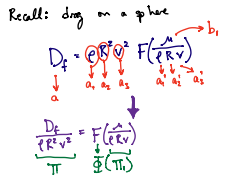 Recall: drag on a sphere
D_f = ρ R² v² F(μ / ρ R v)
b₁
a a₁ a₂ a₃ a₁' a₂' a₃'
D_f / ρ R² v² = F(μ / ρ R v)
Π Φ (Π₁)